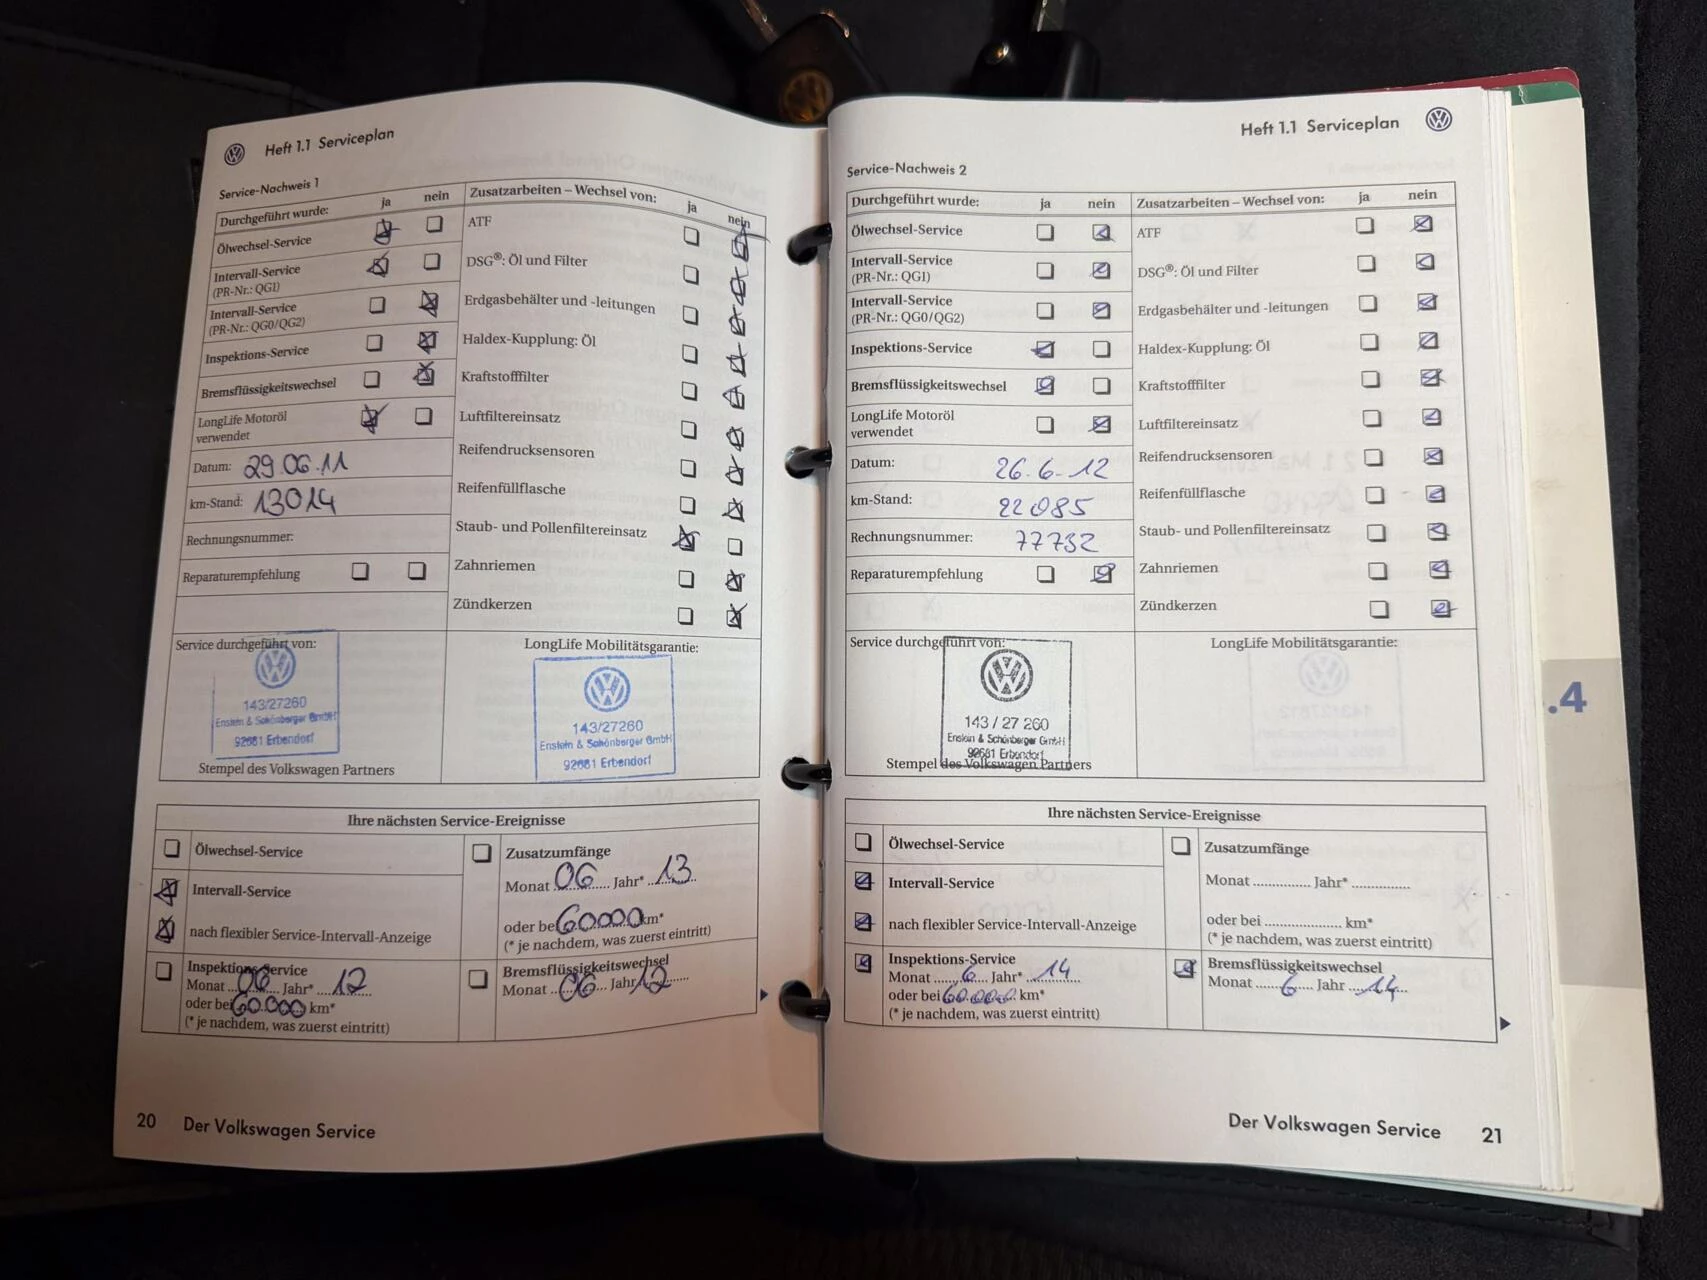 Heft 1.1 Serviceplan
Service-Nachweis 1
Durchgeführt wurde: ja nein
Ölwechsel-Service
Intervall-Service
(PR-Nr.: QG1)
Intervall-Service
(PR-Nr.: QG0/QG2)
Inspektions-Service
Bremsflüssigkeitswechsel
LongLife Motoröl
verwendet
Datum: 29.06.11
km-Stand: 13014
Rechnungsnummer:
Reparaturempfehlung
Zusatzarbeiten – Wechsel von: ja nein
ATF
DSG®: Öl und Filter
Erdgasbehälter und -leitungen
Haldex-Kupplung: Öl
Kraftstofffilter
Luftfiltereinsatz
Reifendrucksensoren
Reifenfüllflasche
Staub- und Pollenfiltereinsatz
Zahnriemen
Zündkerzen
Service durchgeführt von:
143/27260
Enslein & Schönberger GmbH
92681 Erbendorf
Stempel des Volkswagen Partners
LongLife Mobilitätsgarantie:
143/27260
Enslein & Schönberger GmbH
92681 Erbendorf
Ihre nächsten Service-Ereignisse
Ölwechsel-Service
Intervall-Service
nach flexibler Service-Intervall-Anzeige
Inspektions-Service
Monat 06 Jahr* 12
oder bei 60.000 km*
(* je nachdem, was zuerst eintritt)
Zusatzumfänge
Monat 06 Jahr* 13
oder bei 60000 km*
(* je nachdem, was zuerst eintritt)
Bremsflüssigkeitswechsel
Monat 06 Jahr 12
20 Der Volkswagen Service
Heft 1.1 Serviceplan
Service-Nachweis 2
Durchgeführt wurde: ja nein
Ölwechsel-Service
Intervall-Service
(PR-Nr.: QG1)
Intervall-Service
(PR-Nr.: QG0/QG2)
Inspektions-Service
Bremsflüssigkeitswechsel
LongLife Motoröl
verwendet
Datum: 26.6.12
km-Stand: 22085
Rechnungsnummer: 77732
Reparaturempfehlung
Zusatzarbeiten – Wechsel von: ja nein
ATF
DSG®: Öl und Filter
Erdgasbehälter und -leitungen
Haldex-Kupplung: Öl
Kraftstofffilter
Luftfiltereinsatz
Reifendrucksensoren
Reifenfüllflasche
Staub- und Pollenfiltereinsatz
Zahnriemen
Zündkerzen
Service durchgeführt von:
143 / 27 260
Enslein & Schönberger GmbH
92681 Erbendorf
Stempel des Volkswagen Partners
LongLife Mobilitätsgarantie:
Ihre nächsten Service-Ereignisse
Ölwechsel-Service
Intervall-Service
nach flexibler Service-Intervall-Anzeige
Inspektions-Service
Monat 6 Jahr* 14
oder bei 60.000 km*
(* je nachdem, was zuerst eintritt)
Zusatzumfänge
Monat ............... Jahr* ...............
oder bei ..................... km*
(* je nachdem, was zuerst eintritt)
Bremsflüssigkeitswechsel
Monat 6 Jahr 14
Der Volkswagen Service 21
.4